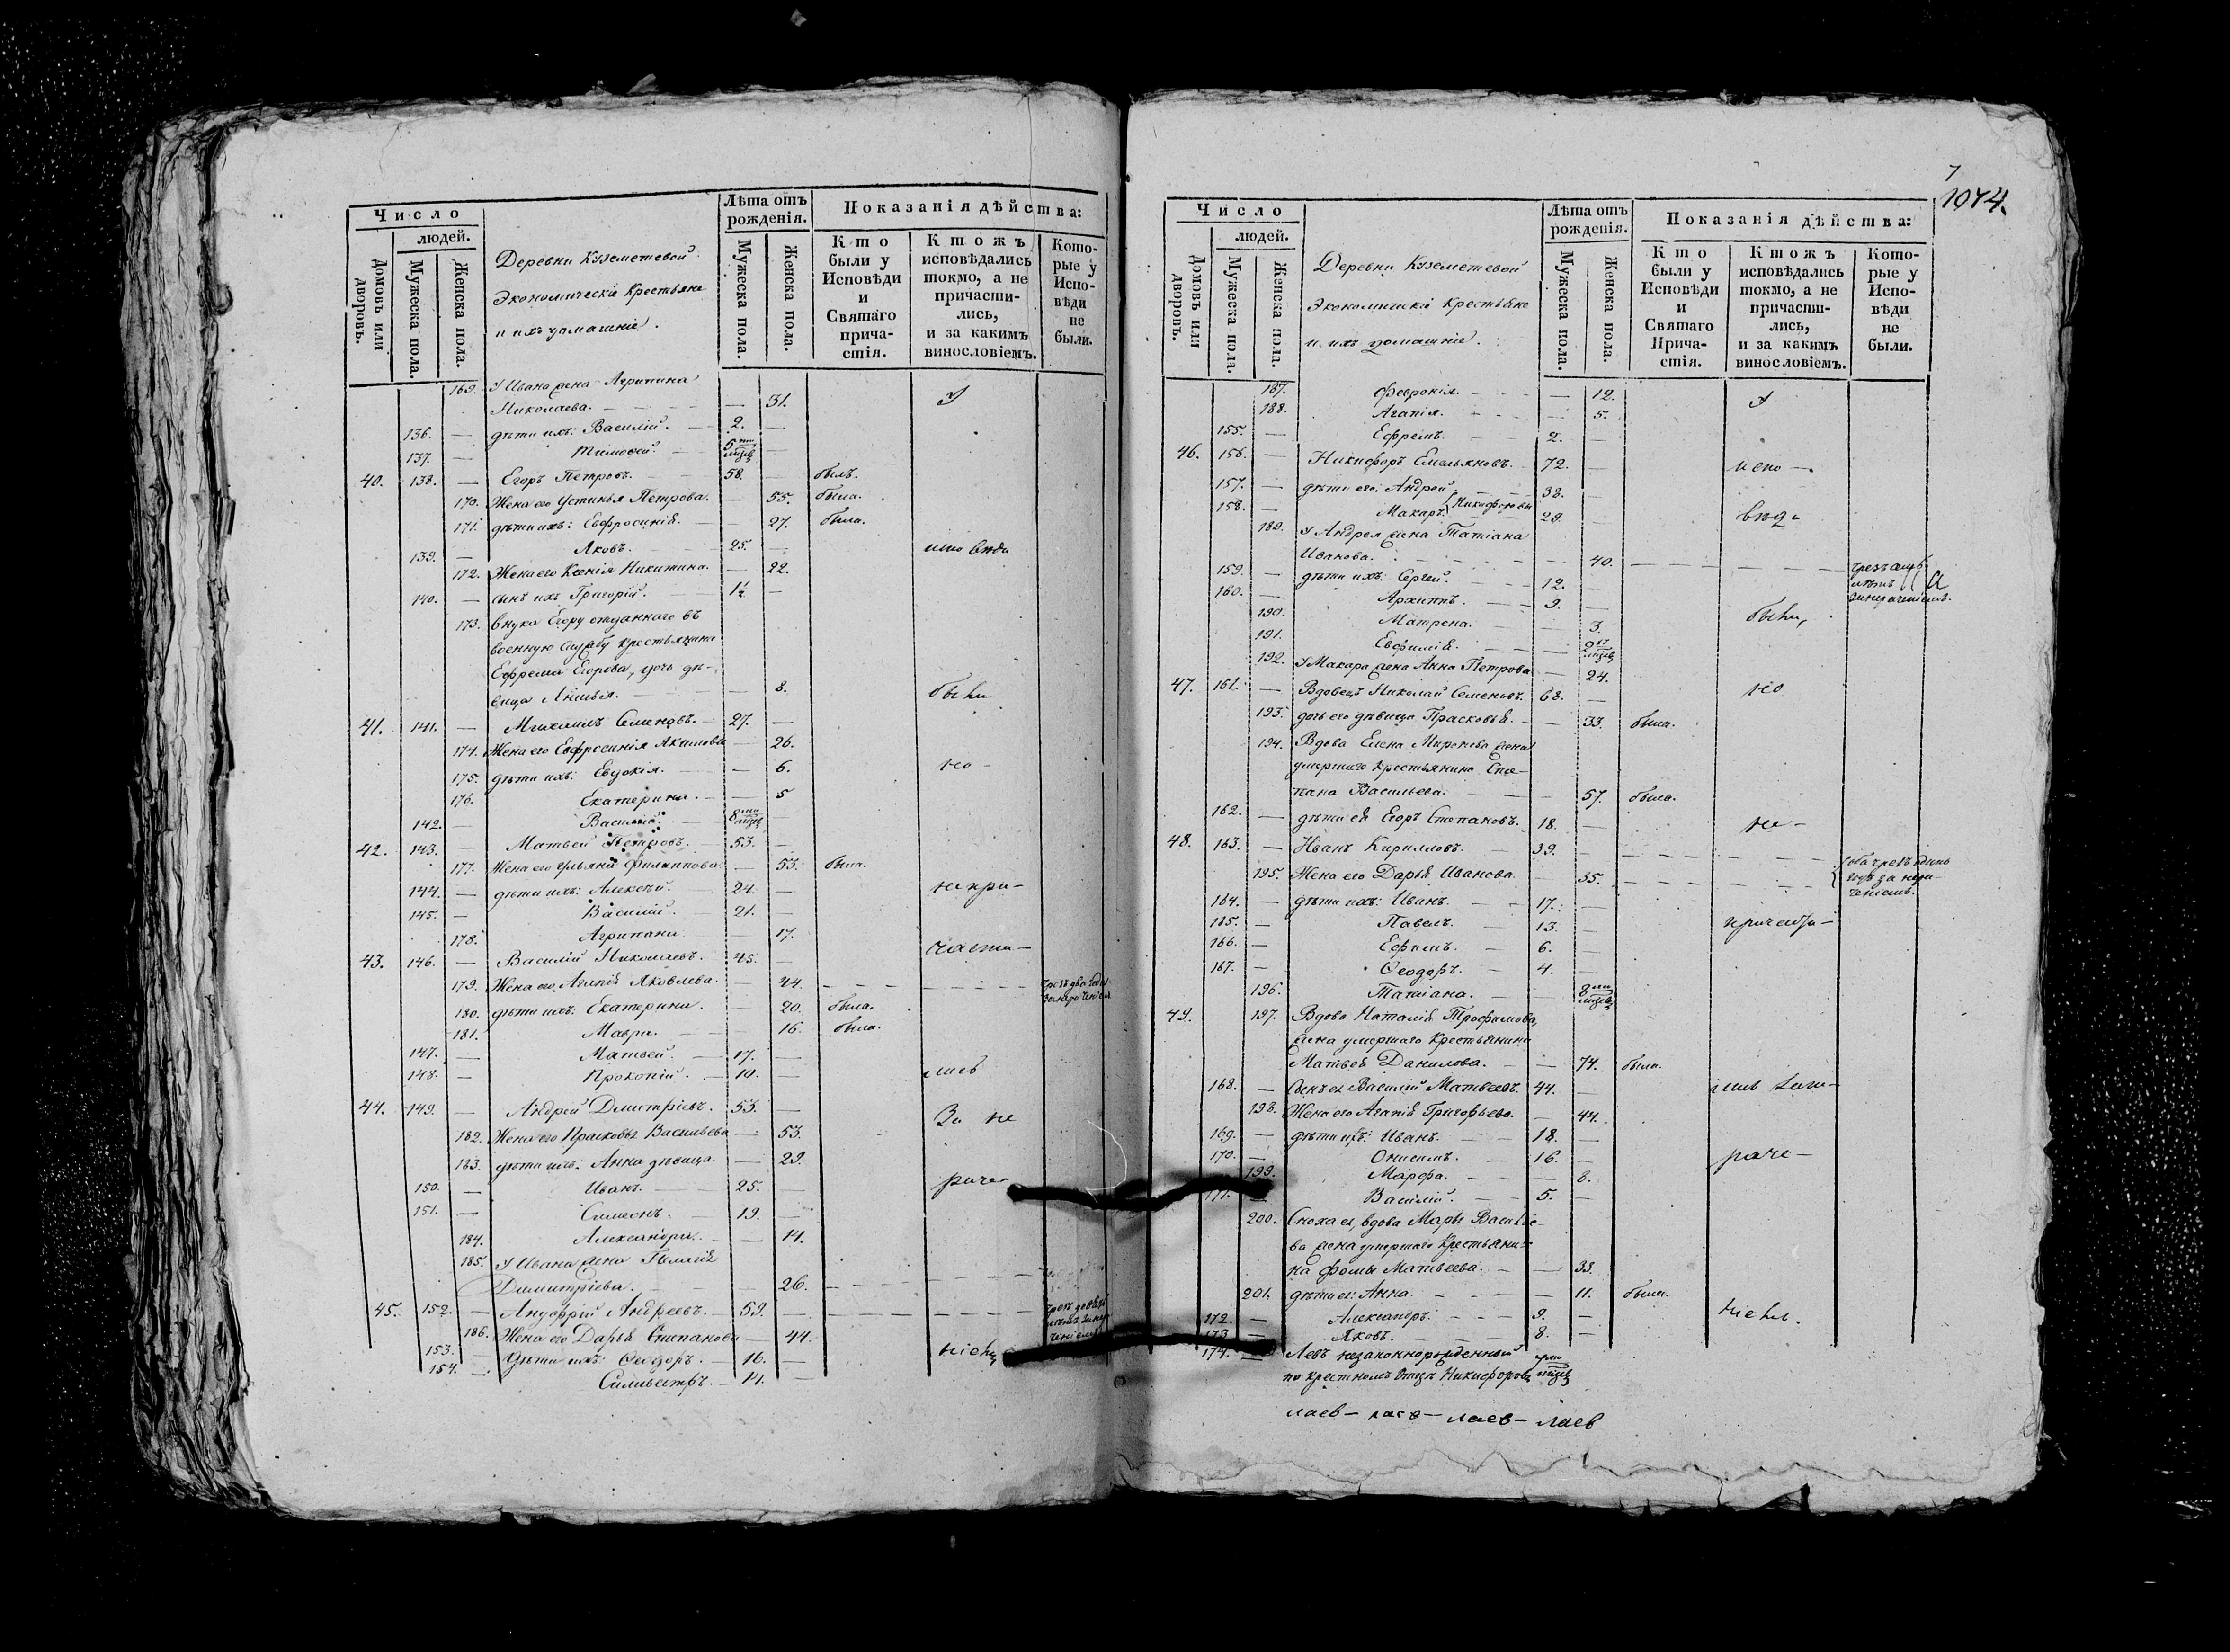 Число
людей.
Домовъ или дворовъ.
Мужеска пола.
Женска пола.
Деревни Куземетевой
Экономическіе Крестьяне
и ихъ домашніе.
Лѣта отъ рожденія.
Мужеска пола.
Женска пола.
Показанія дѣйства:
Кто были у Исповѣди и Святаго причастія.
Ктожъ исповѣдались токмо, а не причастились, и за какимъ винословіемъ.
Которые у Исповѣди не были.
169. У Ивана жена Агрипина
Николаева. — 31. У
136. — дѣти ихъ: Василій. — 2. —
137. — Тимоѳей. — 5 —
40. 138. — Егоръ Петровъ. 58. — былъ.
170. Жена его Устинья Петрова. — 55. была.
171. дѣти ихъ: Евфросинія. — 27. была.
139. — Яковъ. 25. —
172. Жена его Ксенія Никитина. — 22.
140. — сынъ ихъ Григорій. 1½ —
173. внука Егору отданнаго въ
военную службу крестьянина
Ефрема Егорова, дочь дѣ-
вица — 8. быти
41. 141. — Михаилъ Семеновъ. 27. —
174. Жена его Евфросинія Акимова — 26.
175. дѣти ихъ: Евдокія. — 6. не-
176. Екатерина. — 5
142. — Василій. 8 —
42. 143. — Матвей Петровъ. 53. —
177. Жена его Ульяна Филиппова — 53. была.
144. — дѣти ихъ: Алексѣй. 24. — непри-
145. — Василій. 21. —
178. Агрипина — 17.
43. 146. — Василій Николаевъ. 45. — части-
179. Жена его Агапія Яковлева. — 44.
180. дѣти ихъ: Екатерина. — 20. была.
181. Мавра. — 16. была.
147. — Матвей. 17. —
148. — Прокопій. 10. — лись
44. 149. — Андрей Димитріевъ. 53. — За не
182. Жена его Прасковья Васильева — 53.
183. дѣти ихъ: Анна дѣвица — 29.
150. — Иванъ. 25. — раче-
151. — Симеонъ. 19. —
184. Александра. — 14.
185. У Ивана жена Пелагія
Димитріева. 26.
45. 152. — Ануфрій Андреевъ. 59.
186. Жена его Дарья Степанова — 44.
153. — Дѣти ихъ: Ѳеодоръ. 16. — ніемъ
154. — Сильвестръ. 14. —
1074.
Число
людей.
Домовъ или дворовъ.
Мужеска пола.
Женска пола.
Деревни Куземетевой
Экономическіе Крестьяне
и ихъ домашніе.
Лѣта отъ рожденія.
Мужеска пола.
Женска пола.
Показанія дѣйства:
Кто были у Исповѣди и Святаго Причастія.
Ктожъ исповѣдались токмо, а не причастились, и за какимъ винословіемъ.
Которые у Исповѣди не были.
187. Февронія. — 12. У
188. Агапія. — 5.
155. — Ефремъ. 2. —
46. 156. — Никифоръ Емельяновъ. 72. — испо-
157. — дѣти его: Андрей 38. —
158. — Макаръ. Никифоровы 29. — вѣда
189. У Андрея жена Татіана
Иванова. — 40.
159. — дѣти ихъ: Сергей. 12. —
160. — Архипъ. 9. —
190. Матрена. — 3. были,
191. Евфимія. — 9
192. У Макара жена Анна Петрова — 24.
47. 161. — Вдовецъ Николай Семеновъ. 68. — но
193. дочь его дѣвица Прасковья. — 33. была.
194. Вдова Елена Миронова жена
умершаго крестьянина Сте-
пана Васильева. — 57. была.
162. — дѣти ея Егоръ Степановъ. 18. — не-
48. 163. — Иванъ Кирилловъ. 39.
195. Жена его Дарья Иванова. 35.
оба чрезъ одинъ
годъ за нера-
ченіемъ.
164. — дѣти ихъ: Иванъ. 17. —
165. — Павелъ. 13. — причасти-
166. — Ефимъ. 6. —
167. — Ѳеодоръ. 4. —
196. Татіана. 8
49. 197. Вдова Наталія Трофимова,
жена умершаго Крестьянина
Матвея Данилова. — 74. была.
168. — Сынъ ея Василій Матвеевъ. 44. —
198. Жена его Агапія Григорьева. — 44.
169. — дѣти ихъ: Иванъ. 18. —
170. — Онисимъ. 16. — раче-
199. Марѳа. — 8.
171. Василій. 5. —
200. Сноха ея, вдова Марья Василье-
ва жена умершаго Крестьяни-
на Фомы Матвеева. — 33.
201. дѣти ея: Анна. — 11. была.
172. — Александръ. 9. — ніемъ.
173. — Яковъ. 8. —
174. — Левъ незаконнорожденный
по крестномъ Отцѣ Никифоровъ